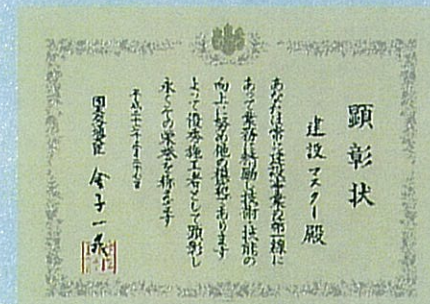 顕彰状
建設マスター殿
あなたは常に建設事業の第一線に
あって業務に精励し技術技能の
向上に努め他の模範であります
よって優秀施工者として顕彰し
永くその栄誉を称えます
平成二十
国土交通大臣 金子一義